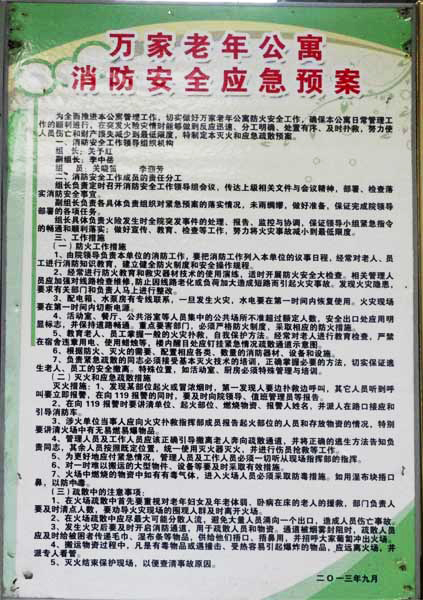 万家老年公寓
消防安全应急预案
为全面推进本公寓管理工作，切实做好万家老年公寓防火安全工作，确保本公寓日常管理工
作的顺利进行，在突发火险灾情时能够做到反应迅速、分工明确、处置有序、及时扑救，努力使
人员伤亡和财产损失减少到最低限度，特制定本灭火和应急疏散预案。
一、消防安全工作领导组织机构
组 长：关予红
副组长：李中岳
组 员：关晓笛 李雅芳
二、消防安全工作成员的责任分工
组长负责定时召开消防安全工作领导组会议，传达上级相关文件与会议精神，部署、检查落
实消防安全事宜。
副组长负责各具体负责组织对紧急预案的落实情况，未雨绸缪，做好准备、保证完成院领导
部署的各项任务。
组长具体负责火险发生时全院突发事件的处理、报告、监控与协调，保证领导小组紧急指令
的畅通和顺利落实；做好宣传、教育、检查等工作，努力将火灾事故减小到最低限度。
三、工作措施
（一）防火工作措施
1、由院领导负责本单位的消防工作，要把消防工作列入本单位的议事日程，经常对老人、员
工进行消防知识教育，建立健全防火制度和安全操作规程。
2、经常进行防火教育和救灾器材技术的使用演练，适时开展防火安全大检查。相关管理人
员应加强对线路检查维修，防止因线路老化或负荷加大造成短路而引起火灾事故。发现火灾隐患，
要求有关部门和负责人马上进行整改。
3、配电箱、水泵房有专线联系，一旦发生火灾，水电要在第一时间内恢复使用。火灾现场
要在第一时间内切断电源。
4、活动室、餐厅、公共浴室等人员集中的公共场所不准超过额定人数，安全出口处应用明
显标志，并保持道路畅通。重点要害部门，必须严格防火制度，采取相应的防火措施。
5、教育老人、员工掌握一般的灭火常识、自我保护方法。经常对老人进行教育检查，严禁
在宿舍违章用电、使用蜡烛等，楼内醒目处应钉挂紧急情况疏散通道示意图。
6、根据防火、灭火的需要，配置相应各类、数量的消防器材、设备和设施。
7、负责紧急疏散的同志必须接受基本灭火技术的培训，正确掌握必要的方法，切实保证逃
生老人、员工的安全撤离。特殊位置，如活动室、厨房必须特殊管理与培训。
（二）灭火和应急疏散措施
灭火措施：1、发现某部位起火或冒浓烟时，第一发现人要边扑救边呼叫，其它人员听到呼
叫要立即报警，在向 119 报警的同时，要及时向院领导、值班管理员等报告。
2、在向 119 报警时要讲清单位、起火部位、燃烧物资、报警人姓名，并派人在路口接应和
引导消防车。
3、涉火单位当事人应向火灾扑救指挥部成员报告起火部位的人员和存放物资的情况，特别
要讲清火场中有无易燃易爆物品。
4、管理人员及工作人员应该正确引导撤离老人奔向疏散通道，并将正确的逃生方法告知负
责同志，其余人员按照既定位置，统一使用灭火器灭火，并进行伤员抢救等工作。
5、为更好地应付紧急情况，管理人员及工作人员必须一切听从现场指挥部的指挥。
6、对一时难以搬运的大型物件、设备等要及时采取有效措施。
7、火场中燃烧的物资中如有有毒气体，进入火场人员必须采取防毒措施。如用湿布块捂口
鼻，以防中毒。
（三）疏散中的注意事项：
1、在火场疏散中首先要重视对老年妇女及年老体弱、卧病在床的老人的援救，部门负责人
要及时清点人数，要劝导火灾现场的围观人群及时离开火场。
2、在火场疏散中应尽最大可能分散人流，避免大量人员涌向一个出口，造成人员伤亡事故。
3、发生火灾后要及时开启消防通道，用于疏散人员和物资。通道被烟雾封阻时，疏散人员应
应及时给被困者传递毛巾、湿布条等物品，供给他们捂口、捂鼻用，并招呼大家匍匐冲出火场。
4、搬运物资过程中，凡是有毒物品或遇撞击、受热容易引起爆炸的物品，应远离火场，并
派专人看管。
5、灭火结束保护现场，以便查清事故原因。
二〇一三年九月